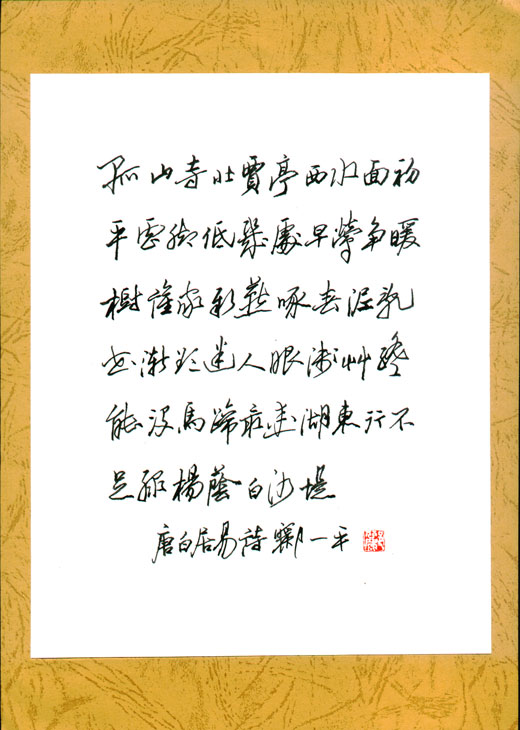 孤山寺北賈亭西水面初
平雲脚低幾處早鶯争暖
樹誰家新燕啄春泥亂
花漸欲迷人眼淺艸纔
能没馬蹄最愛湖東行不
足綠楊蔭白沙堤
唐白居易詩 一平